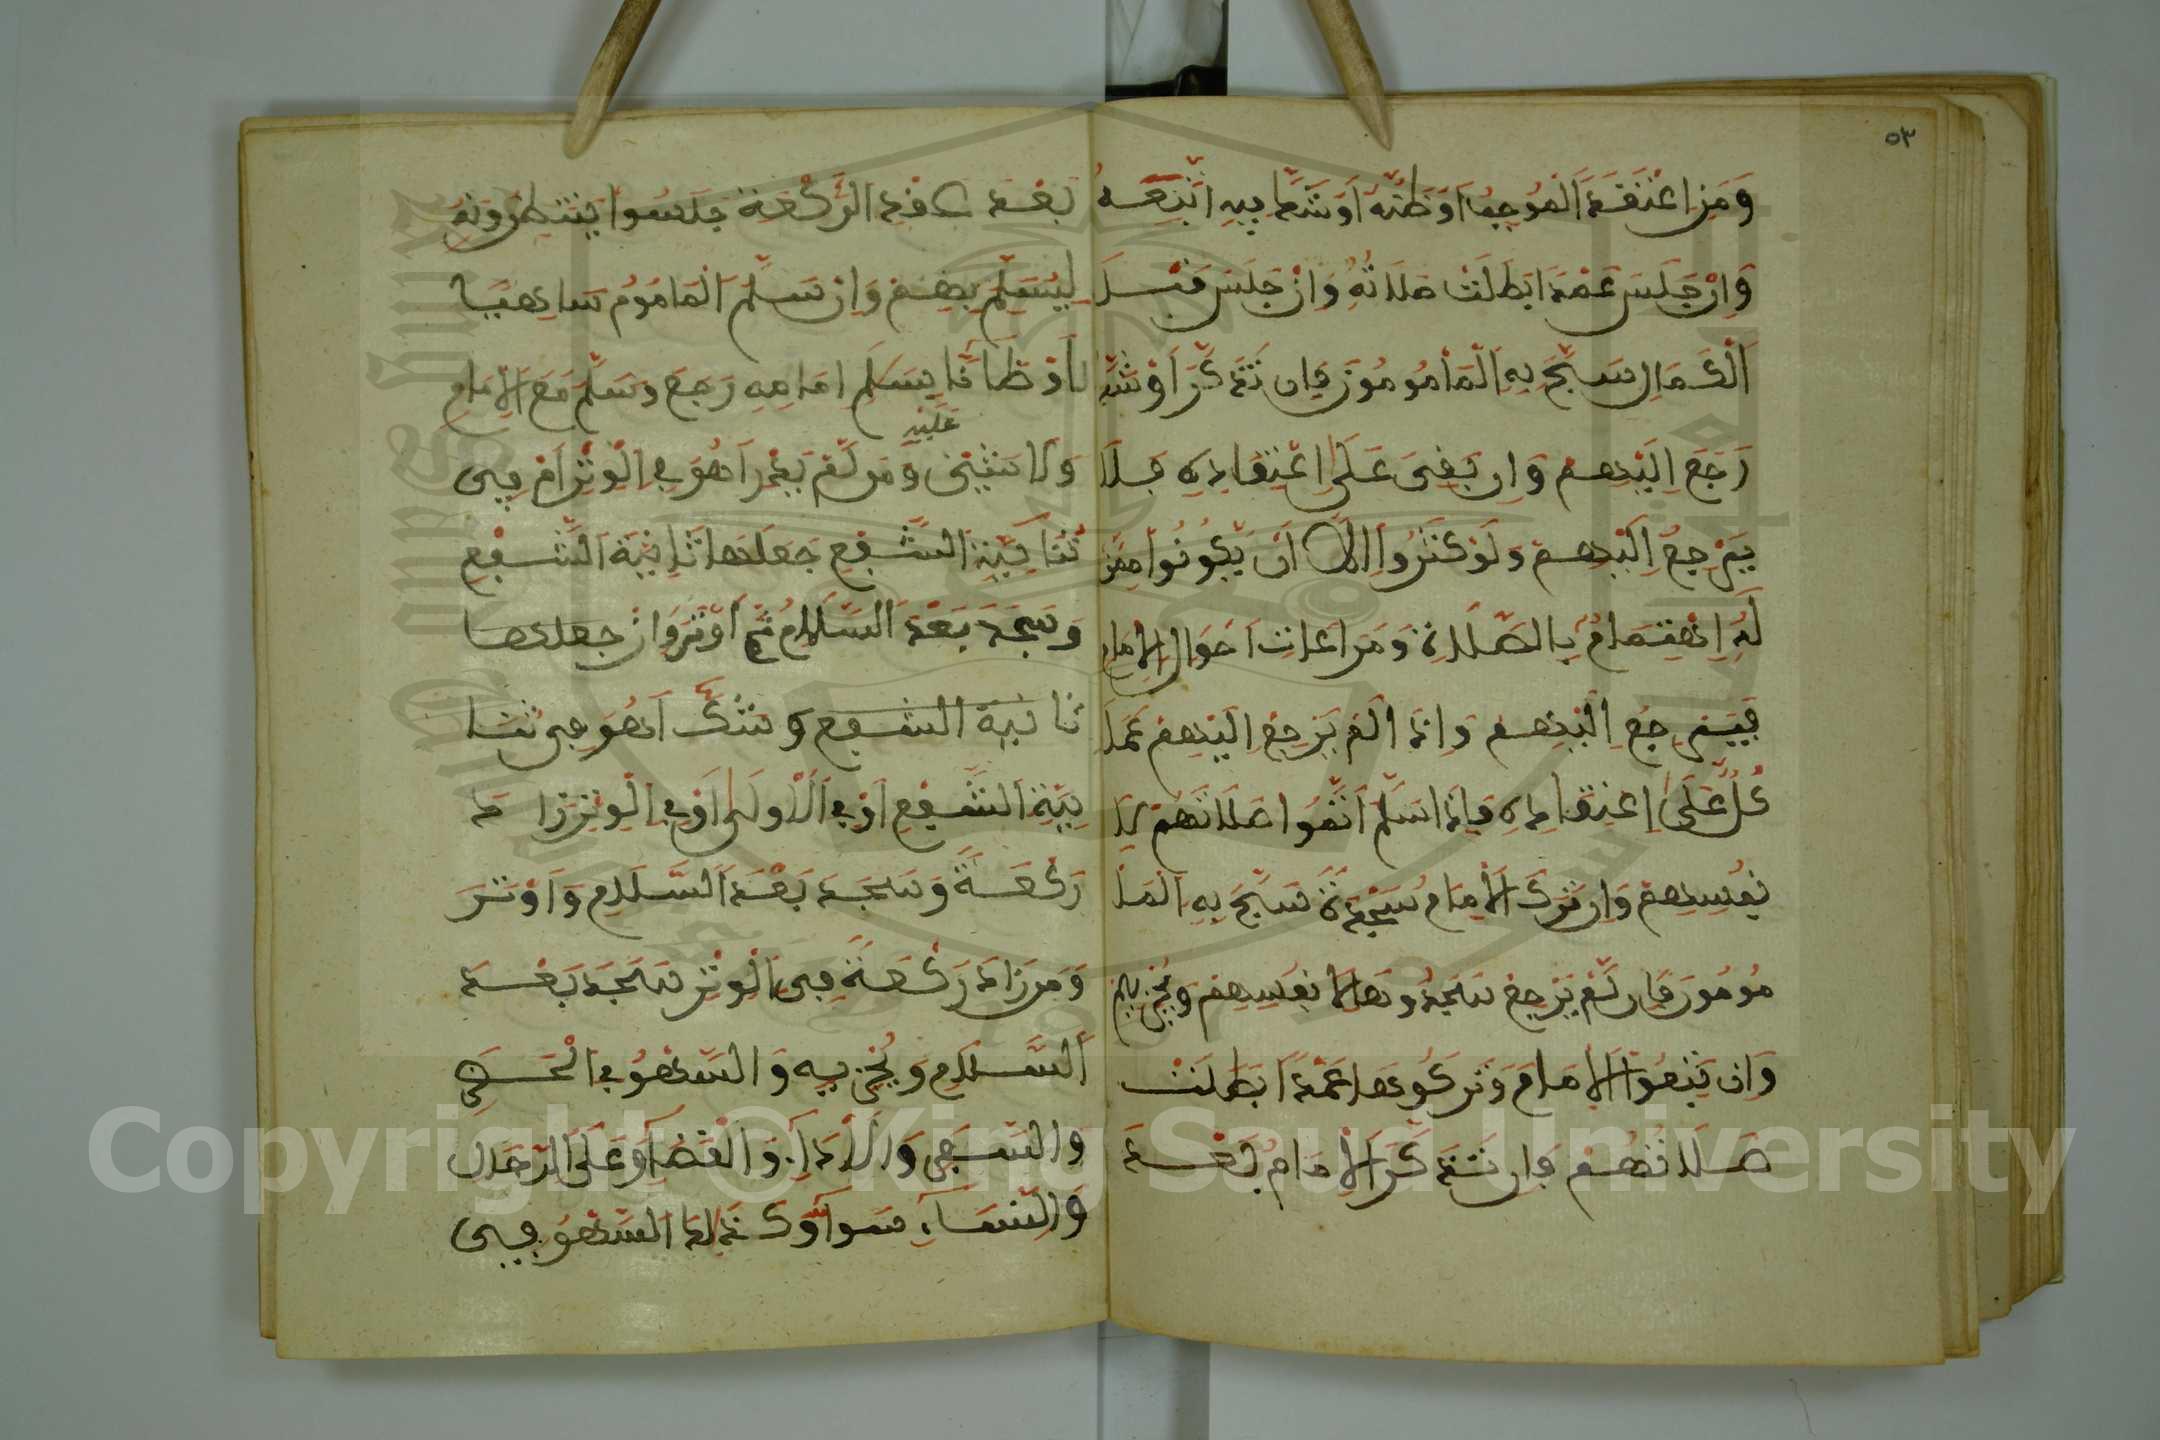 ٥٣
وَمَنِ اعْتَقَدَ الْمُوجِبَ اَوْ ظَنَّهُ اَوْ شَكَّ فِيهِ اتَّبَعَهُ
وَاِنْ جَلَسَ عَمْدًا بَطَلَتْ صَلَاتُهُ وَاِنْ جَلَسَ قَبْلَ
الْكَمَالِ سَبَّحَ بِهِ الْمَأْمُومُونَ فَاِن تَذَكَّرَ اَوْ شَكَّ
رَجَعَ اِلَيْهِمْ وَاِن بَقِىَ عَلَى اعْتِقَادِهِ فَلَا
يَرْجِعُ اِلَيْهِمْ وَلَوْ كَثُرُوا اِلَّا اَن يَّكُونُوا مِمَّن
لَهُ اِهْتِمَامٌ بِالصَّلَاةِ وَمَرَاعَاتِ اَحْوَالِ الْاِمَامِ
فَيَرْجِعُ اِلَيْهِمْ وَاِذَا لَمْ يَرْجِعْ اِلَيْهِمْ عَمَلَ
كُلٌّ عَلَى اعْتِقَادِهِ فَاِذَا سَلَّمَ اَتَمُّوا صَلَاتَهُمْ لِاَ
نفُسِهِمْ وَاِن تَرَكَ الْاِمَامُ سَجْدَةً سَبَّحَ بِهِ الْمَا
مُومُونَ فَاِن لَّمْ يَرْجِعْ سَجَدُوهَا لِاَنفُسِهِمْ وَيُجْزِيهِمْ
وَاِن تَبِعُوا الْاِمَامَ وَتَرَكُوهَا عَمْدًا بَطَلَتْ
صَلَاتُهُمْ فَاِن تَذَكَّرَ الْاِمَامُ بَعْدَ
بَعْدَ عَقْدِ الرَّكْعَةِ جَلَسُوا يَنْتَظِرُونَهُ
لِيُسَلِّمَ بِهِمْ وَاِن سَلَّمَ الْمَامُومُ سَاهِيًا
اَوْ ظَانًّا سَلَامَ اِمَامِهِ رَجَعَ وَسَلَّمَ مَعَ الْاِمَامِ
عَلَيْهِ
وَلَا شَيْئَ وَمَن لَّمْ يَدْرِ اَهُوَ فِي الْوِتْرِ اَمْ فِى
ثَانِيَةِ الشَّفْعِ جَعَلَهَا ثَانِيَةَ الشَّفْعِ
وَسَجَدَ بَعْدَ السَّلَامِ ثُمَّ اَوْتَرَ وَاِنْ جَعَلَهَا
ثَانِيَةَ الشَّفْعِ وَشَكَّ اَهُوَ فِى ثَا
نِيَةِ الشَّفْعِ اَوْ فِي الْاُولَى اَوْ فِي الْوِتْرِ زَادَ
رَكْعَةً وَسَجَدَ بَعْدَ السَّلَامِ وَاَوْتَرَ
وَمَن زَادَ رَكْعَةً فِى الْوِتْرِ سَجَدَ بَعْدَ
السَّلَامِ وَيُجْزِيهِ وَالسَّهْوُ فِي الْحَضَرِ
وَالسَّفَرِ وَالْاَدَاءِ وَالْقَضَاءِ وَعَلَى الرِّجَالِ
وَالنِّسَاءِ سَوَاءٌ وَكَذَلِكَ السَّهْوُ فِى